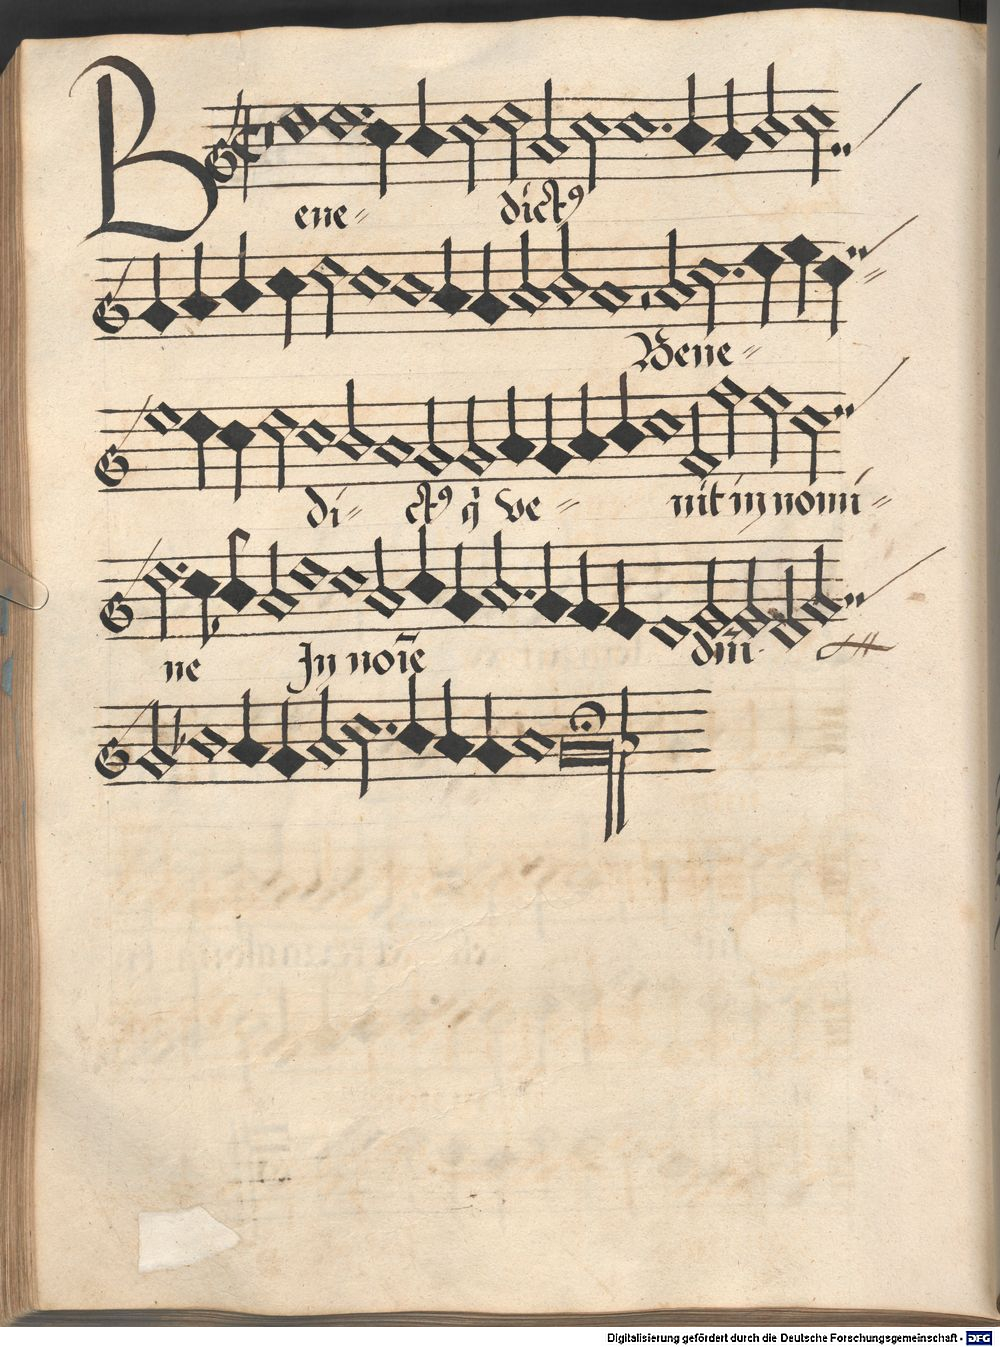 B
ene= dictꝰ
Bene=
di= ctꝰ q̃ ve= nit in nomi=
ne Jn noı̄e dn̄i.
Digitalisierung gefördert durch die Deutsche Forschungsgemeinschaft - DFG